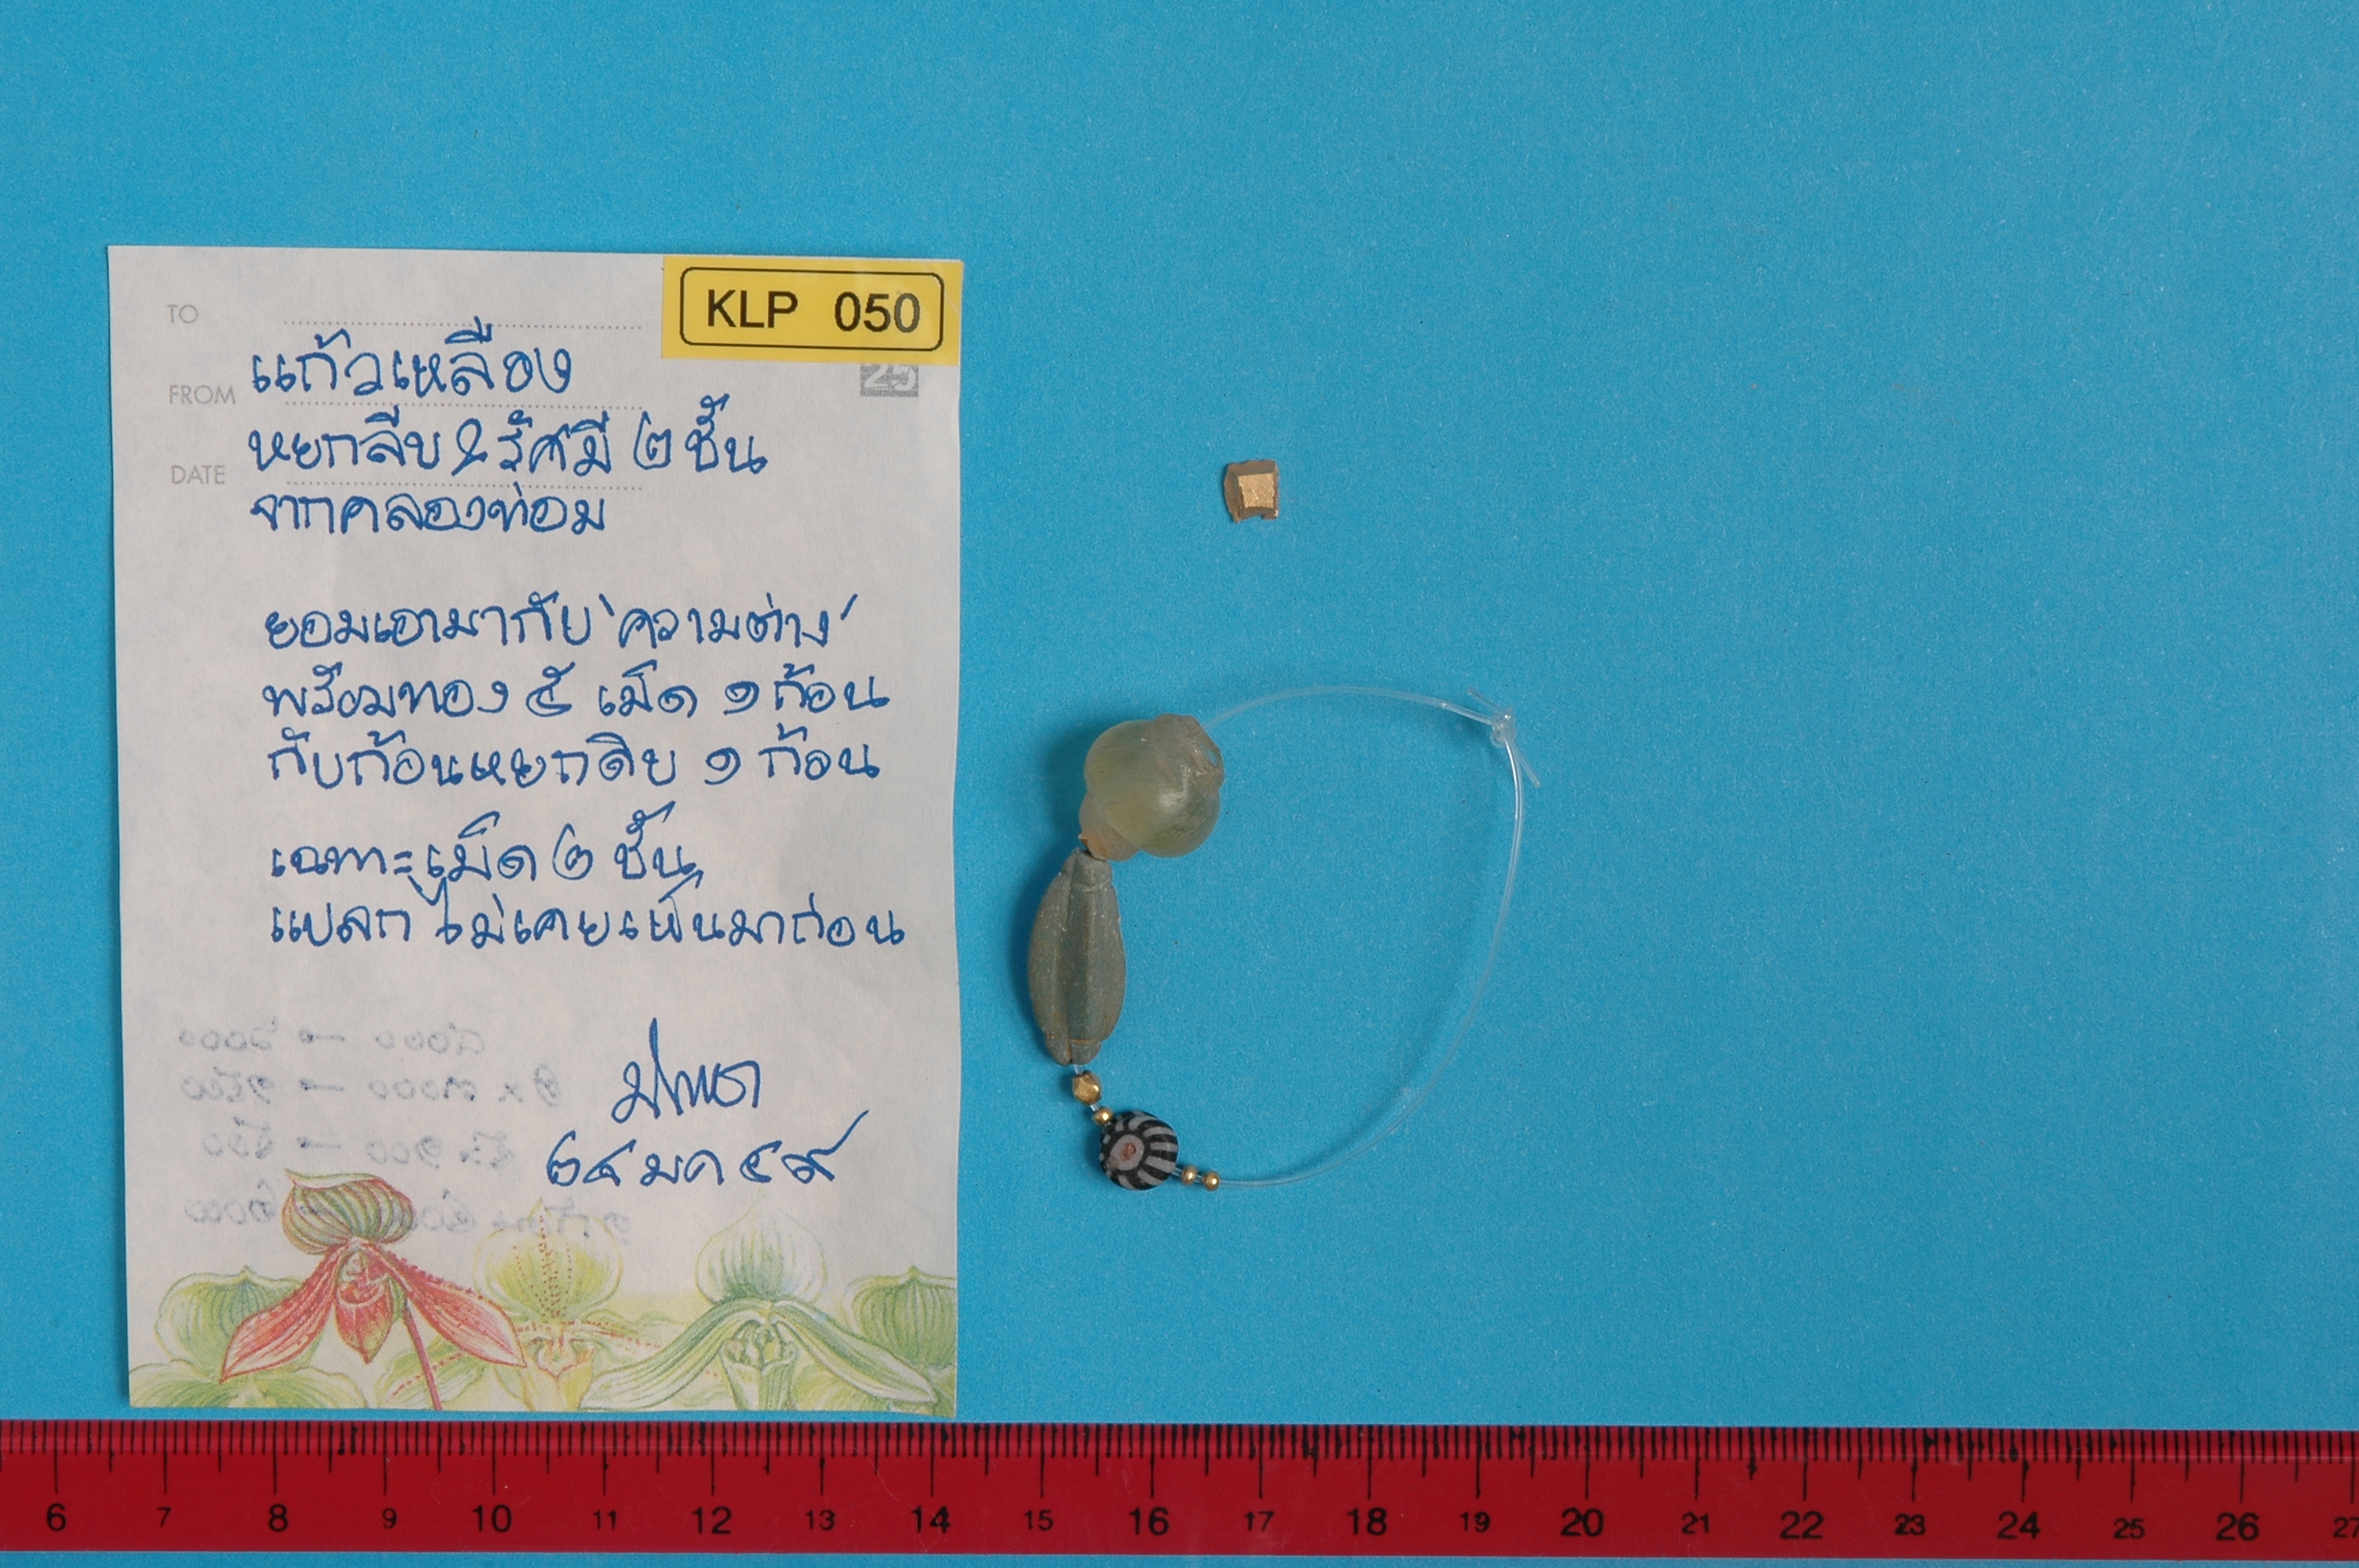 KLP 050
TO
25
FROM
DATE
แก้วเหลือง
หยกลีบ & รัศมี ๒ ชั้น
จากคลองท่อม
ยอมเอามากับ 'ความต่าง'
พร้อมทอง ๕ เม็ด ๑ ก้อน
กับก้อนหยกดิบ ๑ ก้อน
เฉพาะเม็ด ๒ ชั้น
แปลก ไม่เคยเห็นมาก่อน
๒๔ มค ๔๙
6 7 8 9 10 11 12 13 14 15 16 17 18 19 20 21 22 23 24 25 26 27